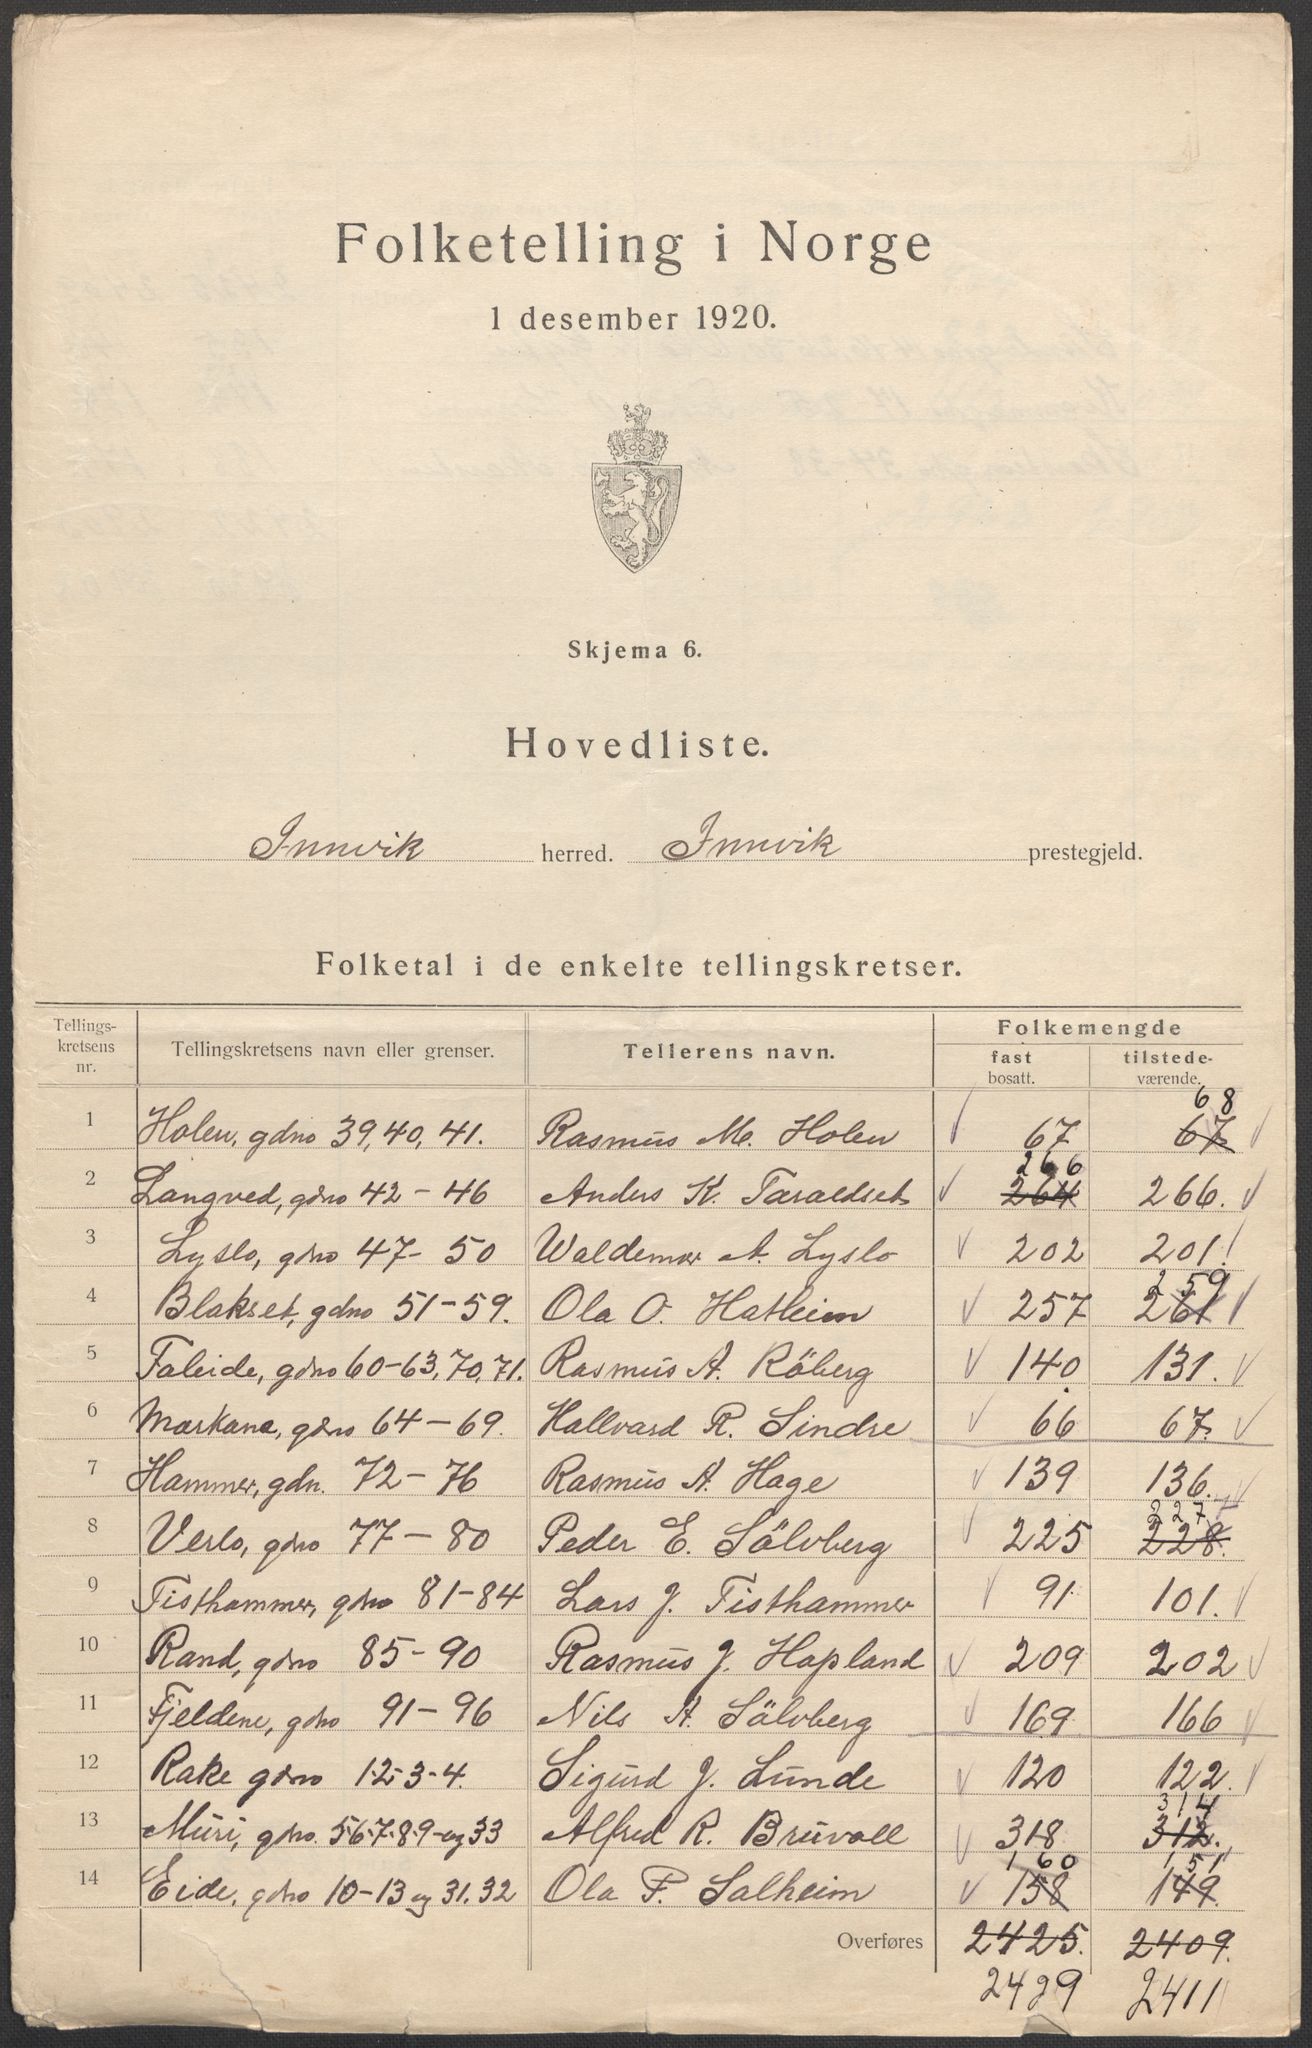 Folketelling i Norge
1 desember 1920.
Skjema 6.
Hovedliste.
Innvik herred. Innvik prestegjeld.
Folketal i de enkelte tellingskretser.
Tellings-kretsens nr. Tellingskretsens navn eller grenser. Tellerens navn. Folkemengde
fast bosatt. tilstede-værende.
1 Holen, gdno 39, 40, 41. Rasmus M. Holen 67 67 68
2 Langved, gdno 42-46 Anders K. Taraldset 264 266 266.
3 Lyslo, gdno 47-50 Waldemar A. Lyslo 202 201
4 Blakset, gdno 51-59. Ola O. Hatleim 257 261 259
5 Faleide, gdno 60-63, 70, 71. Rasmus A. Röberg 140 131.
6 Markane, gdno 64-69. Hallvard R. Sindre 66 67.
7 Hammer, gdn. 72-76 Rasmus A. Hage 139 136.
8 Verlo, gdno 77-80 Peder E. Sölvberg 225 228. 227
9 Tisthammer, gdno 81-84 Lars J. Tisthammer 91 101.
10 Rand, gdno 85-90 Rasmus J. Hopland 209 202
11 Fjeldene, gdno 91-96 Nils A. Sölvberg 169 166
12 Rake gdno 1-2-3-4. Sigurd J. Lunde 120 122.
13 Muri, gdno. 5-6-7-8-9- og 33 Alfred R. Bruvoll 318 312. 314
14 Eide, gdno 10-13 og 31. 32 Ola P. Salheim 158 160 149. 151
Overføres 2425. 2409.
2429 2411